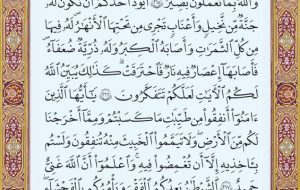 وَٱللَّهُ بِمَا تَعْمَلُونَ بَصِيرٌ ۝ أَيَوَدُّ أَحَدُكُمْ أَن تَكُونَ لَهُۥ
جَنَّةٌ مِّن نَّخِيلٍ وَأَعْنَابٍ تَجْرِى مِن تَحْتِهَا ٱلْأَنْهَٰرُ لَهُۥ فِيهَا
مِن كُلِّ ٱلثَّمَرَٰتِ وَأَصَابَهُ ٱلْكِبَرُ وَلَهُۥ ذُرِّيَّةٌ ضُعَفَآءُ
فَأَصَابَهَآ إِعْصَارٌ فِيهِ نَارٌ فَٱحْتَرَقَتْ ۗ كَذَٰلِكَ يُبَيِّنُ ٱللَّهُ
لَكُمُ ٱلْءَايَٰتِ لَعَلَّكُمْ تَتَفَكَّرُونَ ۝ يَٰٓأَيُّهَا ٱلَّذِينَ
ءَامَنُوٓا۟ أَنفِقُوا۟ مِن طَيِّبَٰتِ مَا كَسَبْتُمْ وَمِمَّآ أَخْرَجْنَا
لَكُم مِّنَ ٱلْأَرْضِ ۖ وَلَا تَيَمَّمُوا۟ ٱلْخَبِيثَ مِنْهُ تُنفِقُونَ وَلَسْتُم
بِـَٔاخِذِيهِ إِلَّآ أَن تُغْمِضُوا۟ فِيهِ ۚ وَٱعْلَمُوٓا۟ أَنَّ ٱللَّهَ غَنِىٌّ
حَمِيدٌ ۝ ٱلشَّيْطَٰنُ يَعِدُكُمُ ٱلْفَقْرَ وَيَأْمُرُكُم بِٱلْفَحْشَآءِ